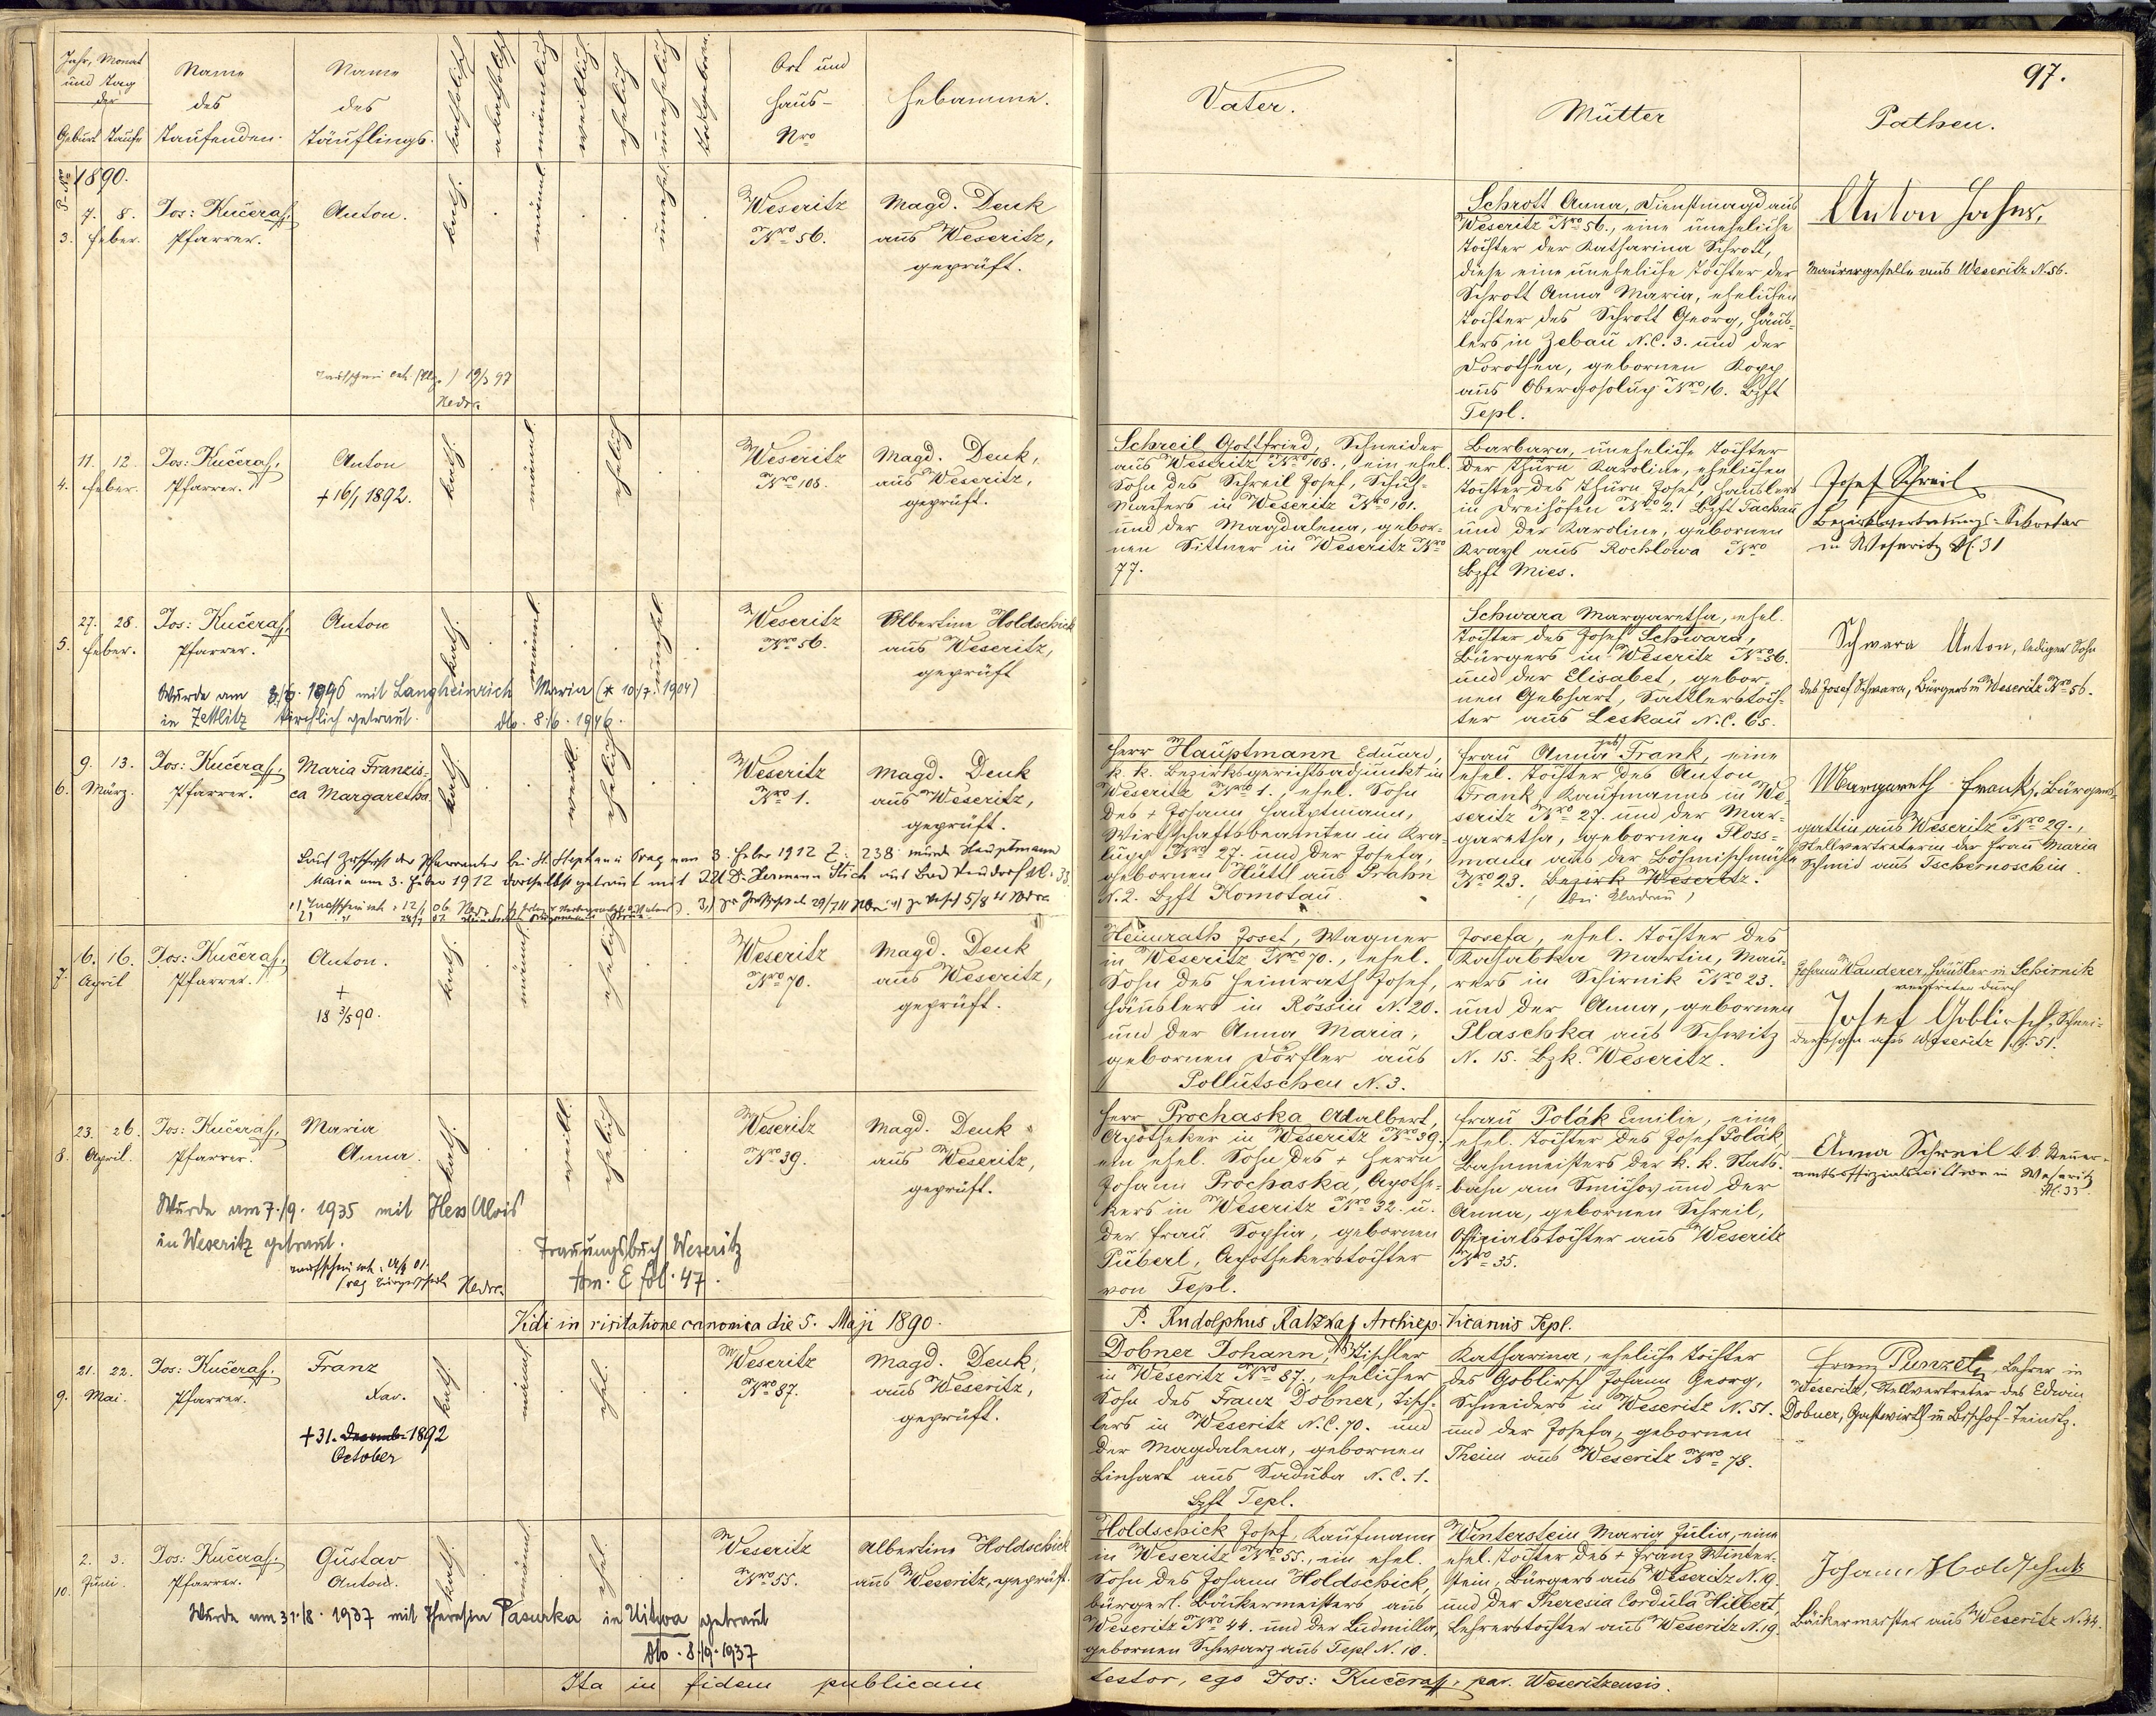 97.
Jahr, Monat
und Tag
der
Geburt Taufe
Name
des
Taufenden.
Name
des
Täuflings.
katholisch
akatholisch
männlich
weiblich
ehelich
unehelich
todtgeboren.
Ort und
Haus-
Nro
Hebamme.
Vater.
Mutter
Pathen.
P-Nro
1890.
3.
7. 8.
Feber.
Jos: Kučera
Pfarrer.
Anton.
kath.
männl.
unehel.
Weseritz
Nro 56.
Magd. Denk
aus Weseritz,
geprüft.
Schrott Anna, Dienstmagd aus
Weseritz Nro 56., eine uneheliche
Tochter der Katharina Schrott,
diese eine uneheliche Tochter der
Schrott Anna Maria, ehelichen
Tochter des Schrott Georg, Häus-
lers in Zebau N.C. 3. und der
Dorothea, gebornen Kopp
aus Obergosolup Nro 16. Bzft
Tepl.
Anton Hahns,
Maurergeselle aus Weseritz N. 56.
19/3 97
4.
11. 12.
Feber.
Jos: Kučera
Pfarrer.
Anton
+ 16/1 1892.
kath.
männl.
ehelich
Weseritz
Nro 108.
Magd. Denk,
aus Weseritz,
geprüft.
Schreil Gottfried, Schneider
aus Weseritz Nro 108., ein ehel.
Sohn des Schreil Josef, Schuh-
machers in Weseritz Nro 101.
und der Magdalena, gebor-
nen Sittner in Weseritz Nro
77.
Barbara, uneheliche Tochter
der Thürn Karoline, ehelichen
Tochter des Thürn Josef, Häuslers
in Dreihöfen Nro 2. Bzft Tachau
und der Karoline, gebornen
Krazl aus Rochlowa Nro
Bzft Mies.
Josef Schreil
Bezirksvertretungs-Sekretär
in Weseritz N. 31
5.
27. 28.
Feber.
Jos: Kučera
Pfarrer.
Anton
kath.
männl.
unehel.
Weseritz
Nro 56.
Albertine Holdschick
aus Weseritz,
geprüft
Schwara Margaretha, ehel.
Tochter des Josef Schwara,
Bürgers in Weseritz Nro 56.
und der Elisabet, gebor-
nen Gebhart, Sattlerstoch-
ter aus Leskau N.C. 65.
Schwara Anton, lediger Sohn
des Josef Schwara, Bürgers in Weseritz Nro 56.
Wurde am 8/6. 1946 mit Langheinrich Maria (* 10/7. 1904)
in Zettlitz kirchlich getraut. dto. 8/6. 1946.
6.
9. 13.
März.
Jos: Kučera
Pfarrer.
Maria Franzis-
ca Margaretha
kath.
weibl.
ehelich
Weseritz
Nro 1.
Magd. Denk
aus Weseritz,
geprüft.
Herr Hauptmann Eduard,
k. k. Bezirksgerichtsadjunkt in
Weseritz Nro 1., ehel. Sohn
des + Johann Hauptmann,
Wirthschaftsbeamten in Kra-
lupp Nro 27. und der Josefa,
gebornen Hüttl aus Prahn
N. 2. Bzft Komotau.
Frau Anna geb. Frank, eine
ehel. Tochter des Anton
Frank, Kaufmanns in We-
seritz Nro 27. und der Mar-
garetha, gebornen Floss-
mann aus der Böhmischmühle
Nro 23. Bezirk Weseritz.
(bei Kladrau)
Margareth Frank, Bürgers-
gattin aus Weseritz Nro 29.,
Stellvertreterin der Frau Maria
Schmid aus Tschernoschin.
Laut Zuschrift des Pfarramtes bei St. Stephan in Prag vom 3. Feber 1912 Z. 238 wurde Hauptmann
Maria am 3. Feber 1912 dortselbst getraut mit Dr. Hermann Stich aus
7.
6. 16.
April
Jos: Kučera
Pfarrer.
Anton.
+
18 3/5 90.
kath.
männl.
ehelich
Weseritz
Nro 70.
Magd. Denk
aus Weseritz,
geprüft.
Heinrath Josef, Wagner
in Weseritz Nro 70., ehel.
Sohn des Heinrath Josef,
Häuslers in Rössin N. 20.
und der Anna Maria,
gebornen Dörfler aus
Pollutschen N. 3.
Josefa, ehel. Tochter des
Kasabka Martin, Mau-
rers in Schirnik Nro 23.
und der Anna, gebornen
Plaschka aus Schwitz
N. 15. Bzk. Weseritz.
Johann Wanderer, Häusler in Schirnik
vertreten durch
Josef Goblirsch, Schnei-
derssohn aus Weseritz N. 51.
8.
23. 26.
April.
Jos: Kučera
Pfarrer.
Maria
Anna.
kath.
weibl.
ehelich
Weseritz
Nro 39.
Magd. Denk
aus Weseritz,
geprüft.
Herr Prochaska Adalbert,
Apotheker in Weseritz Nro 39.
ein ehel. Sohn des + Herrn
Johann Prochaska, Apothe-
kers in Weseritz Nro 32. u.
der Frau Sophia, gebornen
Püberl, Apothekerstochter
von Tepl.
Frau Polák Emilie, eine
ehel. Tochter des Josef Polák,
Bahnmeisters der k. k. Stats-
bahn am Smichov und der
Anna, gebornen Schreil,
Offizialstochter aus Weseritz
Nro 35.
Anna Schreil k.k. Steuer-
amtsoffizialswittwe in Weseritz
N. 35
Wurde am 7./9. 1935 mit Hess Alois
in Weseritz getraut.
Trauungsbuch Weseritz
tom. E fol. 47.
Vidi in visitatione canonica die 5. Maji 1890.
P. Rudolphus Ratzka Archiep. Vicarius Tepl.
9.
21. 22.
Mai.
Jos: Kučera
Pfarrer.
Franz
Xav.
+ 31. Decemb. 1892
October
kath.
männl.
ehel.
Weseritz
Nro 87.
Magd. Denk,
aus Weseritz,
geprüft.
Dobner Johann, Tischler
in Weseritz Nro 87., ehelicher
Sohn des Franz Dobner, Tisch-
lers in Weseritz N.C. 70. und
der Magdalena, gebornen
Linhart aus Saduba N.C. 1.
Bzft Tepl.
Katharina, eheliche Tochter
des Goblirsch Johann Georg,
Schneiders in Weseritz N. 51.
und der Josefa, gebornen
Theim aus Weseritz Nro 78.
Franz Punzet, Lehrer in
Weseritz, Stellvertreter des Edwin
Dobner, Gastwirth in Bischof-Teinitz.
10.
2. 3.
Juni.
Jos: Kučera
Pfarrer.
Gustav
Anton.
kath.
männl.
ehel.
Weseritz
Nro 55.
Albertine Holdschick
aus Weseritz, geprüft.
Holdschick Josef, Kaufmann
in Weseritz Nro 55., ein ehel.
Sohn des Johann Holdschick,
bürgerl. Bäckermeisters aus
Weseritz Nro 44. und der Ludmilla,
gebornen Schwarz aus Tepl N. 10.
Winterstein Maria Julia, eine
ehel. Tochter des + Franz Winter-
stein, Bürgers aus Weseritz N. 19.
und der Theresia Cordula Hilbert,
Lehrerstochter aus Weseritz N. 19.
Johann Holdschick
Bäckermeister aus Weseritz N. 44.
Wurde am 31./8. 1937 mit Theresia Pasurka in Uitwa getraut
dto. 8./9. 1937
Ita in fidem publicam
testor, ego Jos: Kučera, par. Weseritzensis.